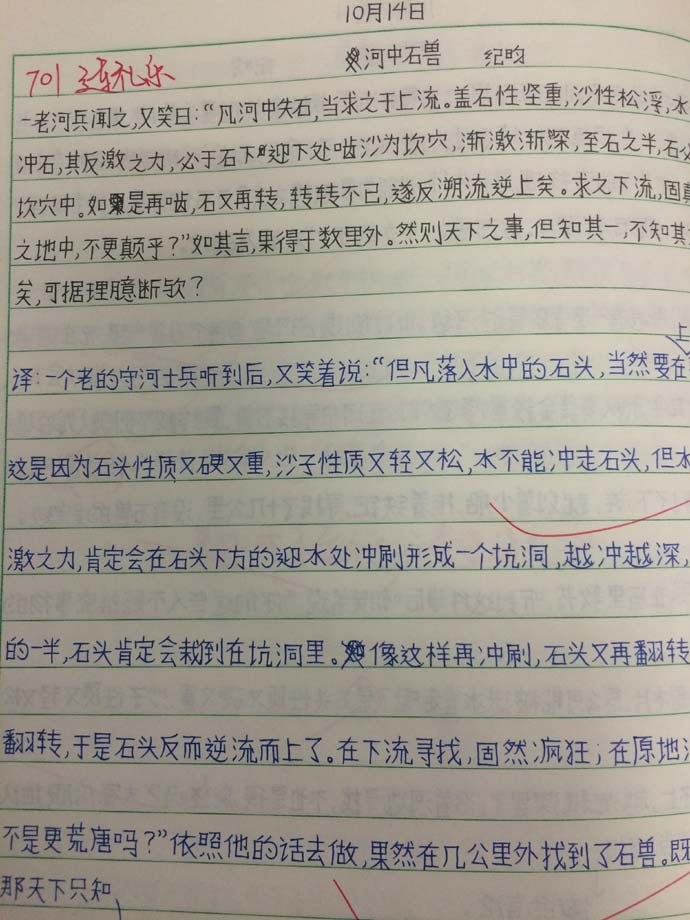 10月14日
河中石兽 纪昀
701
一老河兵闻之,又笑曰:“凡河中失石,当求之于上流。盖石性坚重,沙性松浮,水
冲石,其反激之力,必于石下迎下处啮沙为坎穴,渐激渐深,至石之半,石必
坎穴中。如是再啮,石又再转,转转不已,遂反溯流逆上矣。求之下流,固颠
之地中,不更颠乎?”如其言,果得于数里外。然则天下之事,但知其一,不知其
矣,可据理臆断欤?
上
译:一个老的守河士兵听到后,又笑着说:“但凡落入水中的石头,当然要在
这是因为石头性质又硬又重,沙子性质又轻又松,水不能冲走石头,但水
激之力,肯定会在石头下方的迎水处冲刷形成一个坑洞,越冲越深,
的一半,石头肯定会栽到在坑洞里。像这样再冲刷,石头又再翻转
翻转,于是石头反而逆流而上了。在下流寻找,固然疯狂;在原地
不是更荒唐吗?”依照他的话去做,果然在几公里外找到了石兽。既
那天下只知,